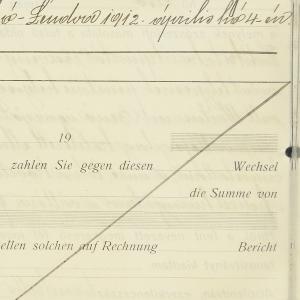 Sándord 1912. április hó 4 én
19
zahlen Sie gegen diesen Wechsel
die Summe von
ellen solchen auf Rechnung Bericht